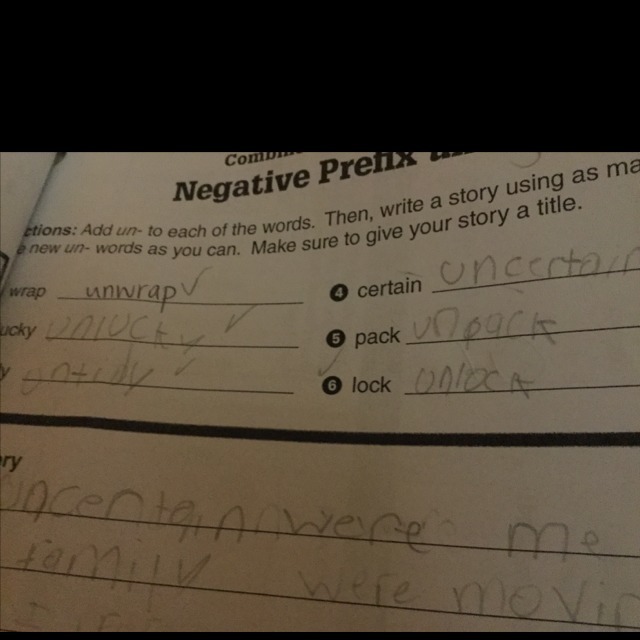 Negative Prefix
ctions: Add un- to each of the words. Then, write a story using as ma
e new un- words as you can. Make sure to give your story a title.
wrap unwrap ✓
4 certain uncertain
ucky unlucky ✓
5 pack unpack
y untidy ✓
6 lock unlock
ry
uncentain were me
family were movin